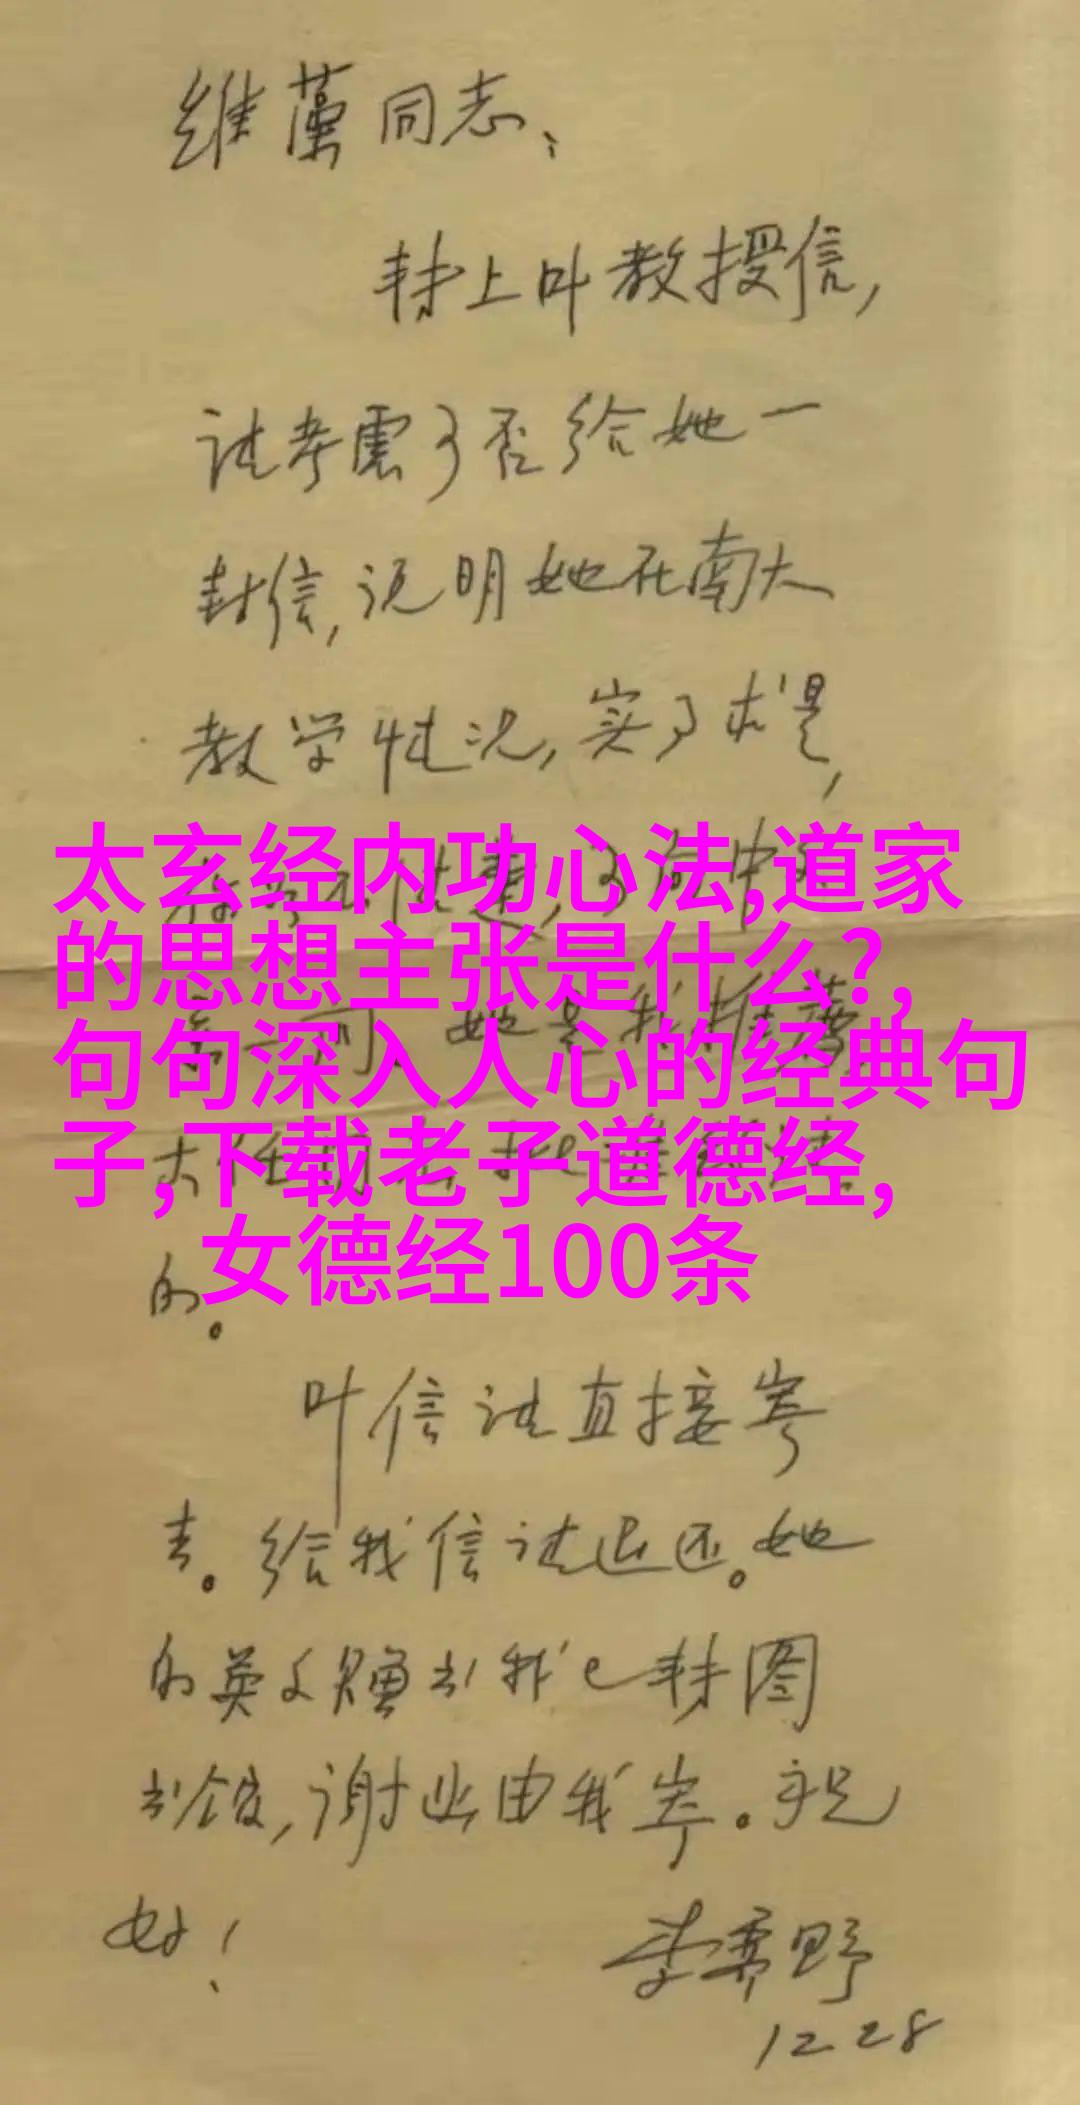 维藻同志：
转上叶教授信，
请考虑可否给她一
封信，说明她在南大
教学情况，实事求是，
太玄经内功心法,道家
的思想主张是什么?,
她是我推荐
句句深入人心的经典句
子,下载老子道德经,
女德经100条
的。
叶信请直接寄
去。给我信请退还。她
的英文赠书我已转图
书馆，谢函由我寄。祝
好！
李霁野
12 28